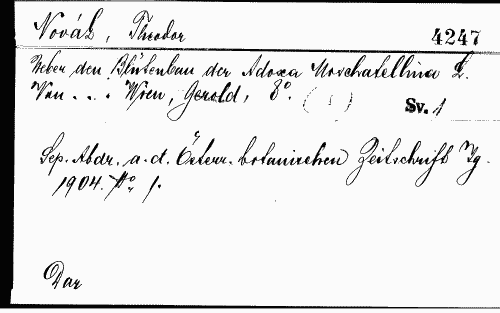 Novák, Theodor
4247
Ueber den Blütenbau der Adoxa Moschatellina L.
Von . . . Wien, Gerold, 8°. ( )
Sv. 1
Sep. Abdr. a. d. Österr. botanischen Zeitschrift Jg.
1904. No. 1.
Dar